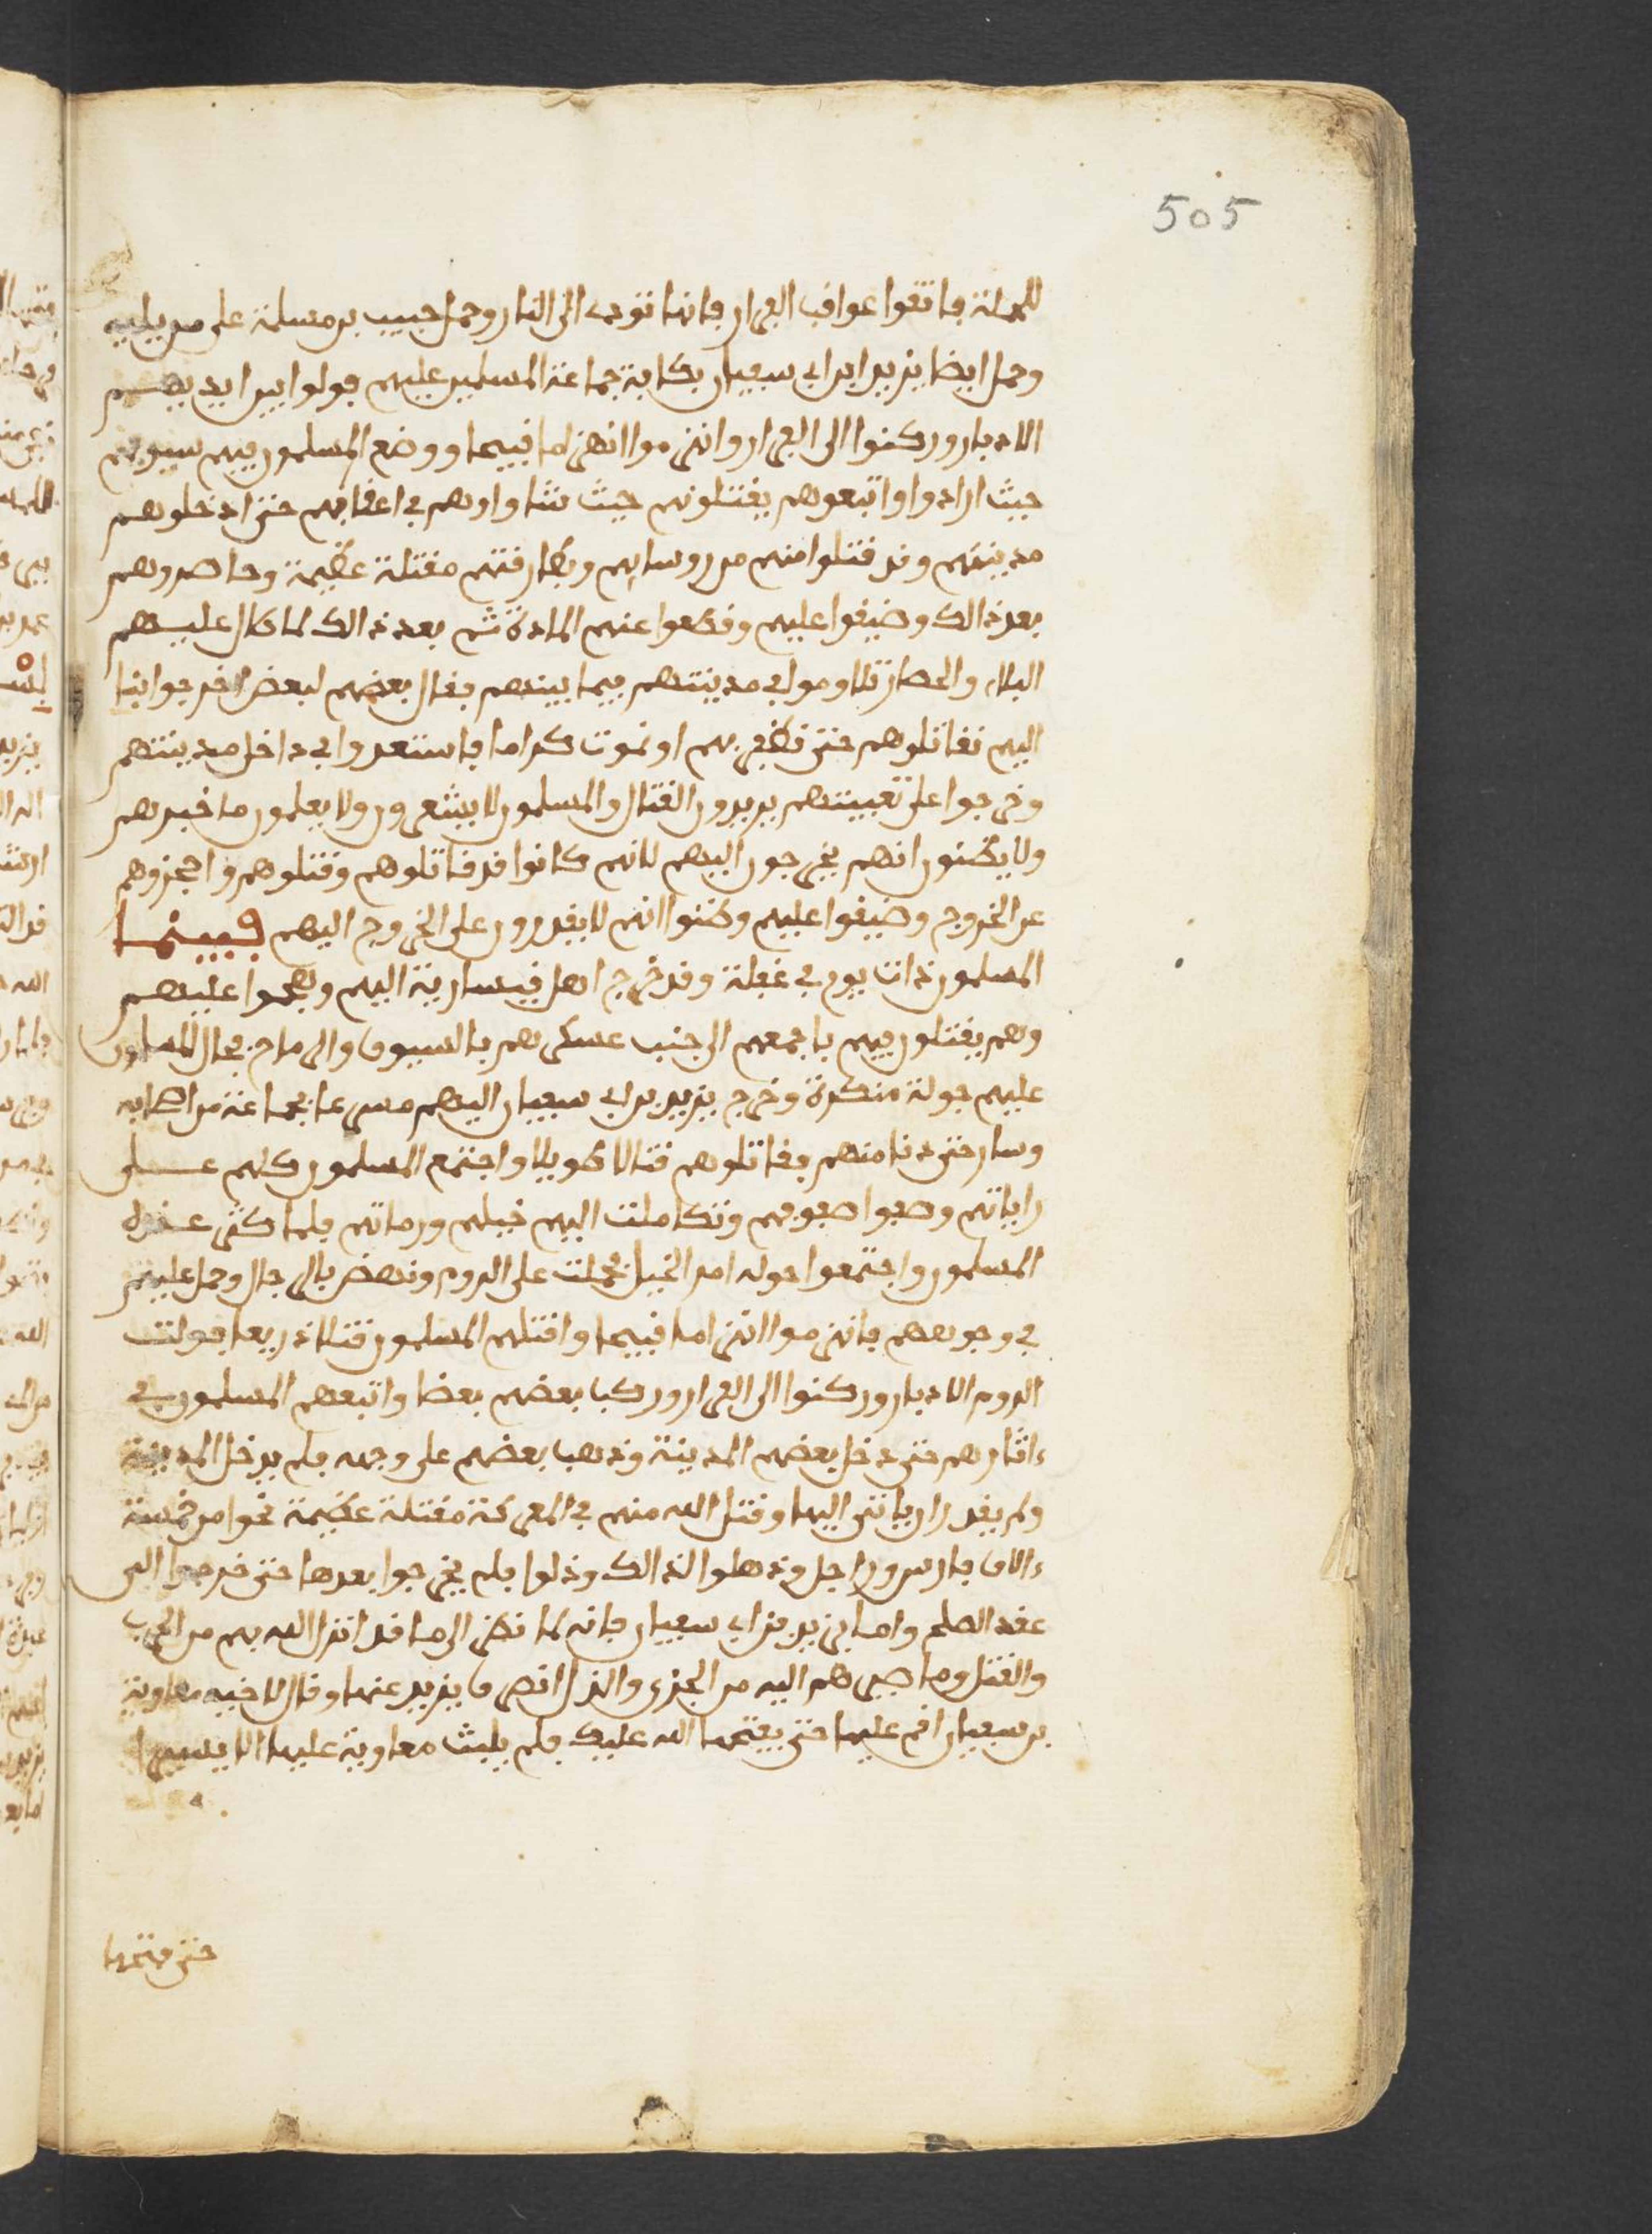 505
للحملة فاتقوا عواقب الفرار فانها تودى الى النار وحمل حبيب بن مسلمة على من يليه
وحمل ايضا يزيد ابن ابى سفيان بكافة جماعة المسلمين عليهم فولوا بين ايديهم
الادبار وركنوا الى الفرار وانهزموا انهزاما قبيحا ووضع المسلمون فيهم سيوفهم
حيث ارادوا واتبعوهم يقتلونهم حيث شاوا وهم فى اعقابهم حتى ادخلوهم
مدينتهم وقد قتلوا منهم من روسايهم وبطارقتهم مقتلة عظيمة وحاصروهم
بعد ذالك وضيقوا عليهم وقطعوا عنهم المادة ثم بعد ذالك لما طال عليهم
البلاء والحصار تلاوموا فى مدينتهم فيما بينهم فقال بعضهم لبعض اخرجوا بنا
اليهم نقاتلوهم حتى نظفر بهم او نموت كراما فاستعدوا فى داخل مدينتهم
وخرجوا على تعبيتهم يريدون القتال والمسلمون لا يشعرون ولا يعلمون ما خبرهم
ولا يظنون انهم يخرجون اليهم لانهم كانوا قد قاتلوهم وقتلوهم واحجزوهم
عن الخروج وضيقوا عليهم وظنوا انهم لا يقدرون على الخروج اليهم فبينما
المسلمون ذات يوم فى غفلة وقد خرج اهل قيسارية اليهم وهجموا عليهم
وهم يقتلون فيهم باجمعهم الى جنب عسكرهم بالسيوف والرماح فجال المسلمون
عليهم جولة منكرة وخرج يزيد بن ابى سفيان اليهم مسرعا بجماعة من اصحابه
وسار حتى دنا منهم فقاتلوهم قتالا طويلا واجتمع المسلمون كلهم على
راياتهم وصفوا صفوفهم وتكاملت اليهم خيلهم ورماتهم فلما كثر عنده
المسلمون واجتمعوا حوله امر الخيل فحملت على الروم ونهض بالرجال وحمل عليهم
فى وجوههم فانهزموا انهزاما قبيحا وقتلهم المسلمون قتلا ذريعا فولت
الروم الادبار وركنوا الى الفرار وركب بعضهم بعضا واتبعهم المسلمون فى
ءاثارهم حتى دخل بعضهم المدينة وذهب بعضهم على وجهه فلم يدخل المدينة
ولم يقدر ان ياتى اليها وقتل الله منهم فى المعركة مقتلة عظيمة نحوا من خمسة
ءالاف فارس وراجل وذهلوا لذالك وذلوا فلم يخرجوا بعدها حتى خرجوا الى
عقد الصلح واما يزيد بن ابى سفيان فانه لما نظر الى ما قد انزل الله بهم من الحرب
والقتل وما صيرهم اليه من الخزى والذل انصرف يزيد عنها وقال لاخيه معاوية
بن سفيان اقم عليها حتى يفتحها الله عليك فلم يلبث معاوية عليها الا يسيرا
حتى فتحها